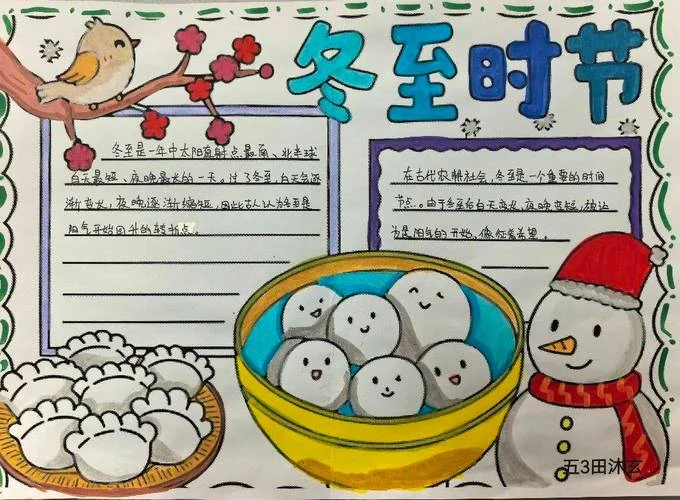 冬至时节
冬至是一年中太阳直射点最南、北半球
白天最短、夜晚最长的一天。过了冬至,白天会逐
渐变长,夜晚逐渐缩短,因此古人认为冬至是
阳气开始回升的转折点。
在古代农耕社会,冬至是一个重要的时间
节点。由于冬至后白天变长,夜晚变短,被认
为是阳气的开始,像征着希望。
五3田沐玄